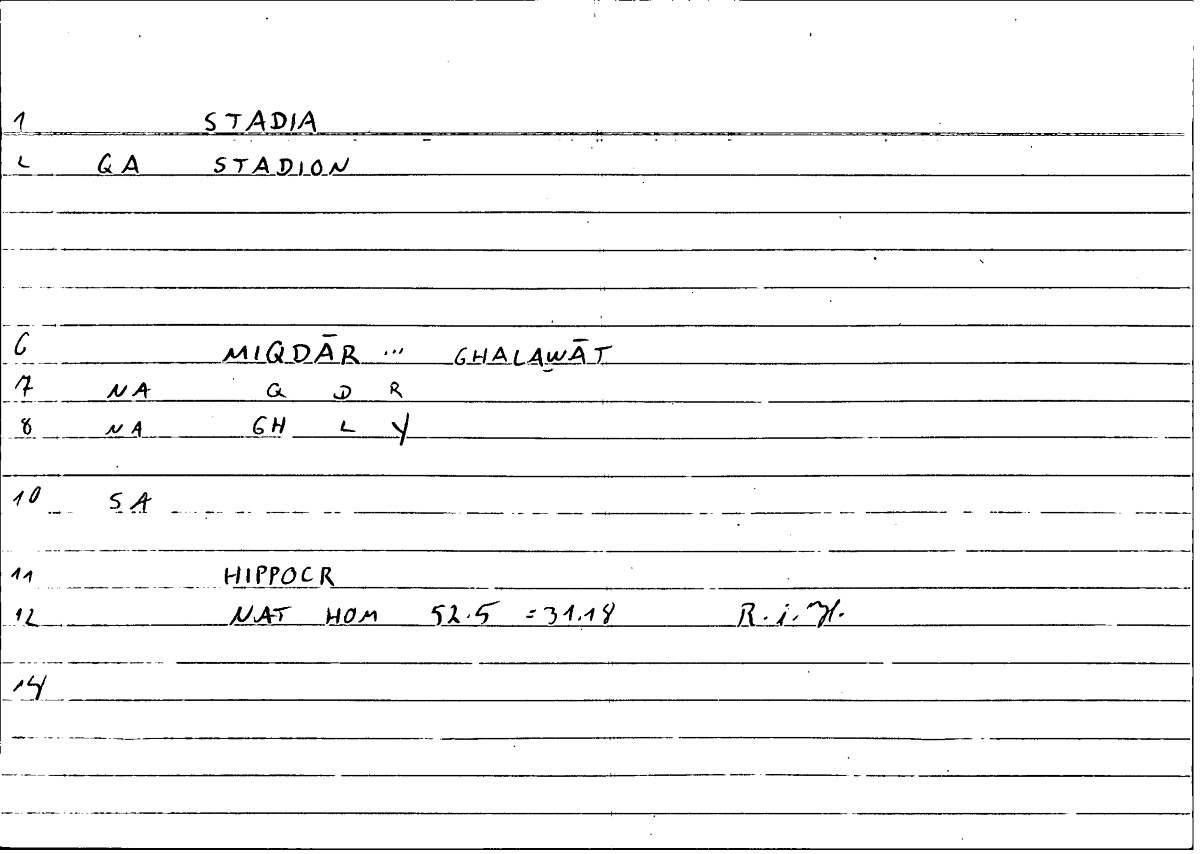 1 STADIA
2 GA STADION
6 MIQDĀR ... GHALAWĀT
7 NA Q D R
8 NA GH L Y
10 SA
11 HIPPOCR
12 NAT HOM 52.5 =31.18 R.i.H.
14